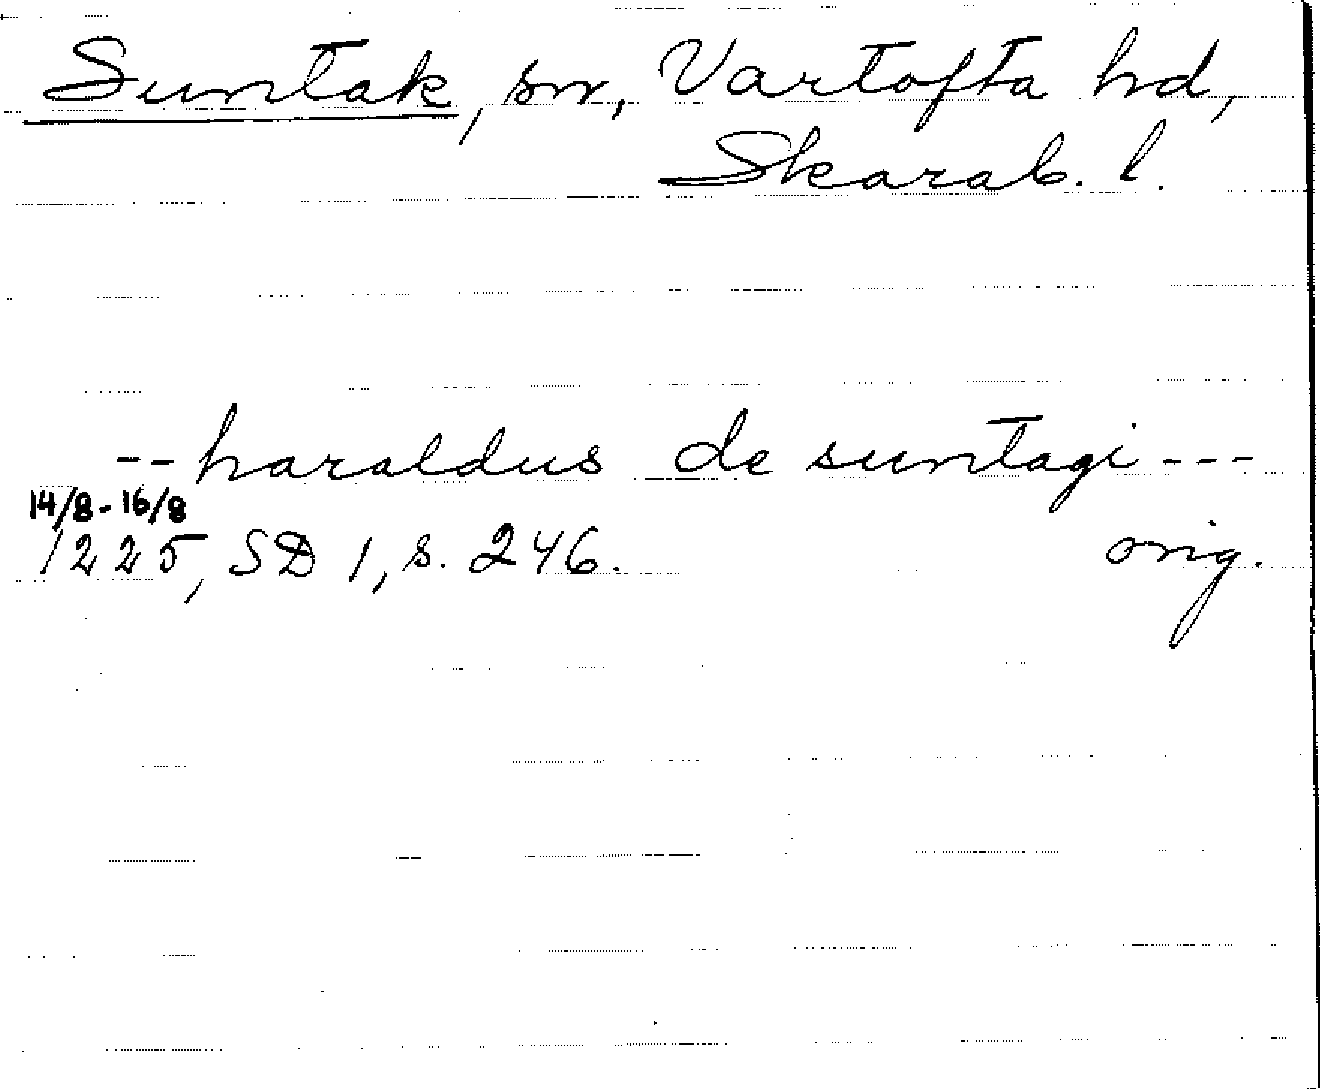 Suntak, sn, Vartofta hd,
Skarab. l.
-- haraldus de suntagi ---
14/8 - 16/8
1225, SD 1, s. 246.
orig.